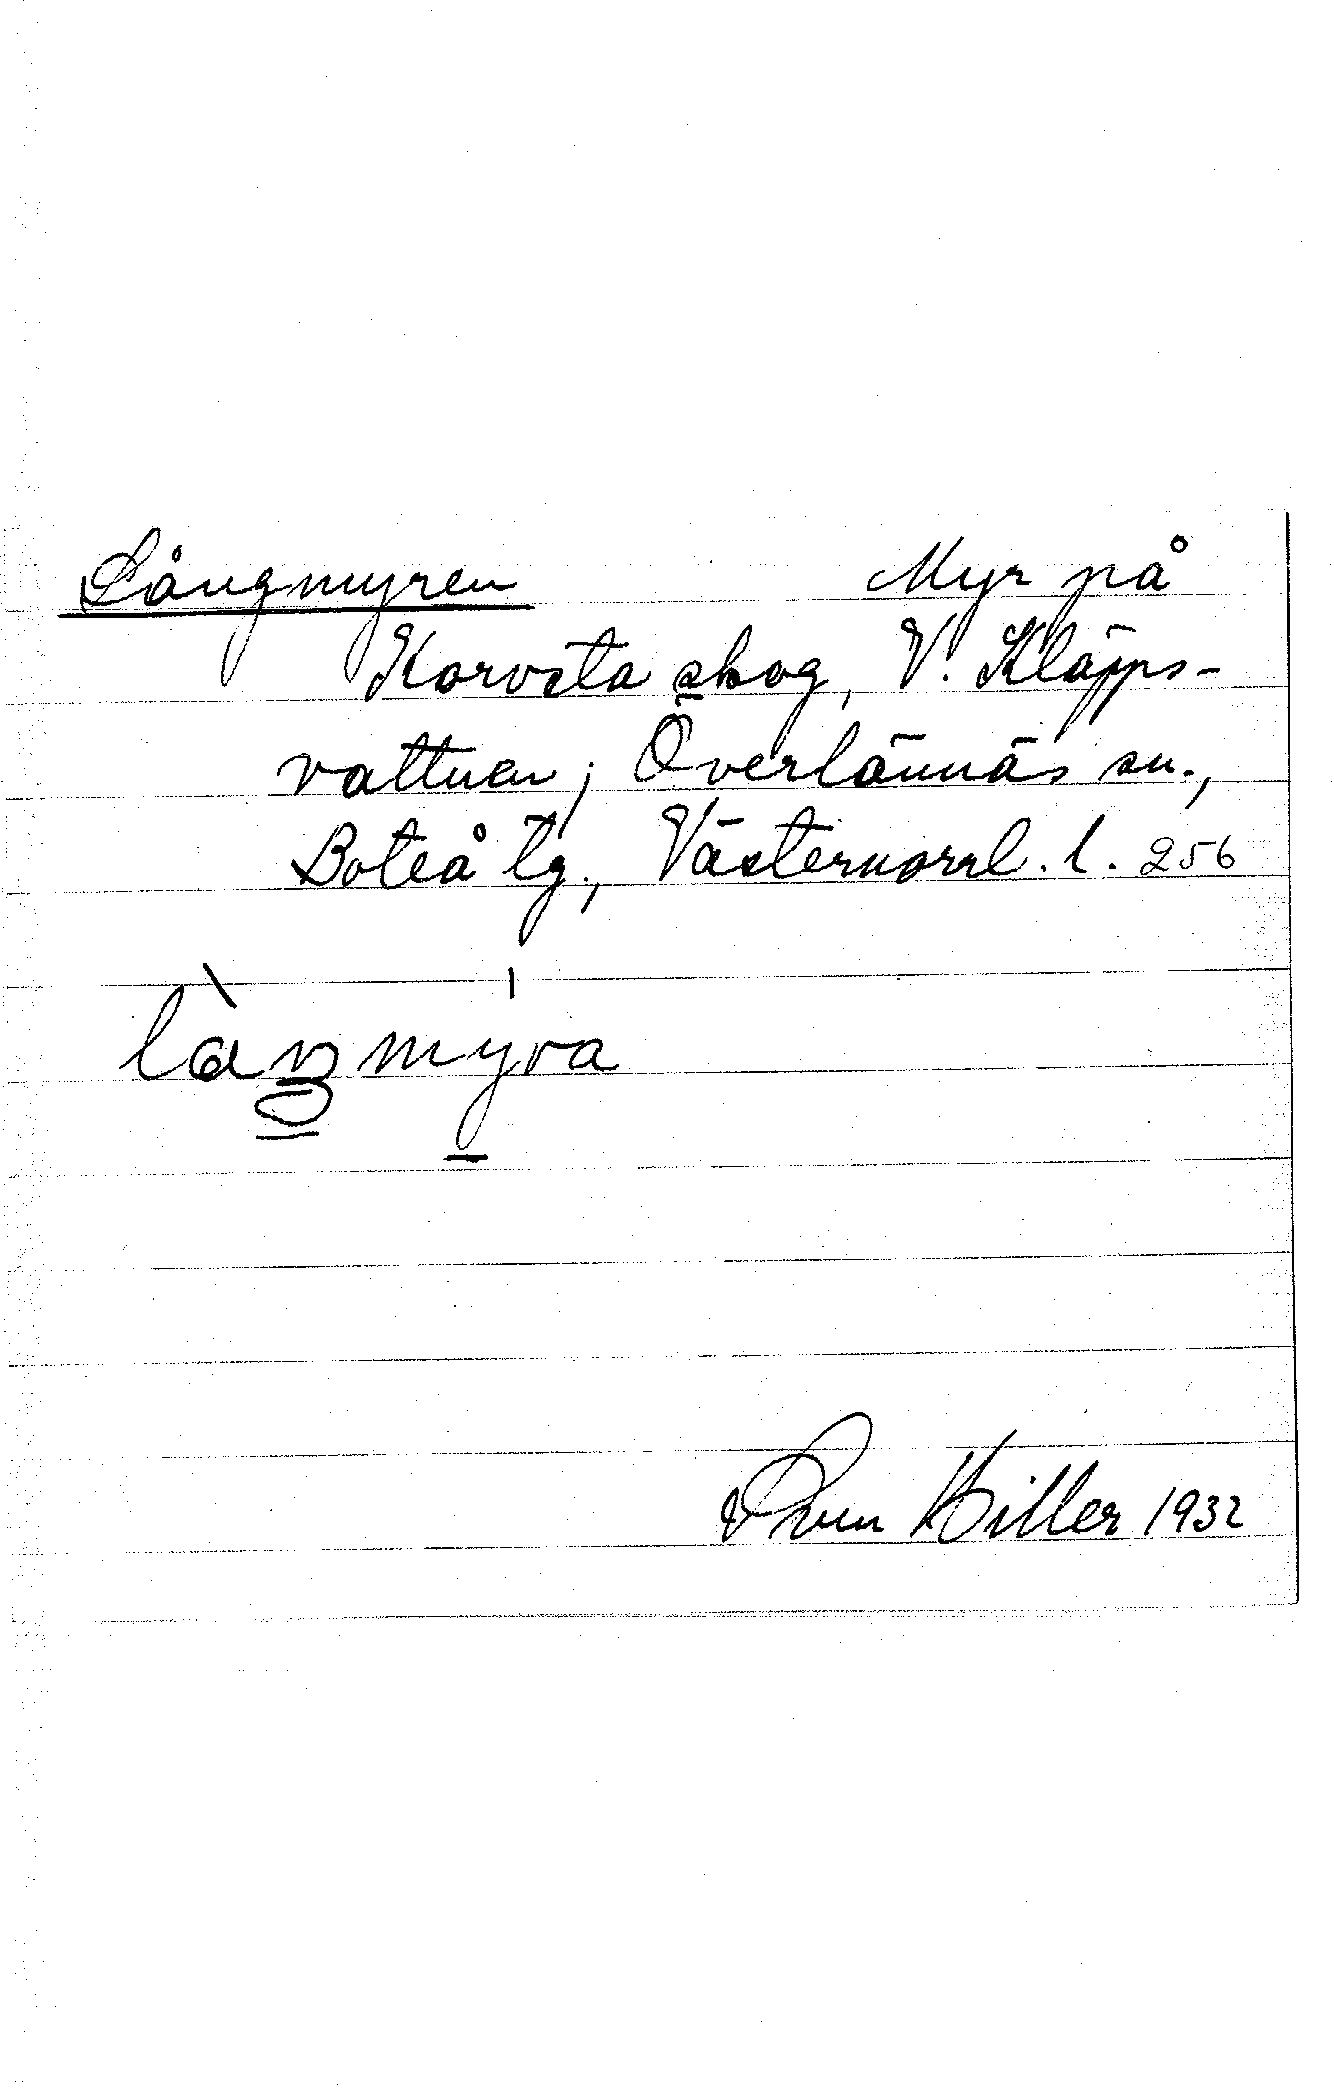 Långmyren Myr på
Korvsta skog, V. Kläpps-
vattnen; Överlännäs sn.,
Boteå tg., Västernorrl. l. 256
làŋmy̠ra
Sven Hiller 1932